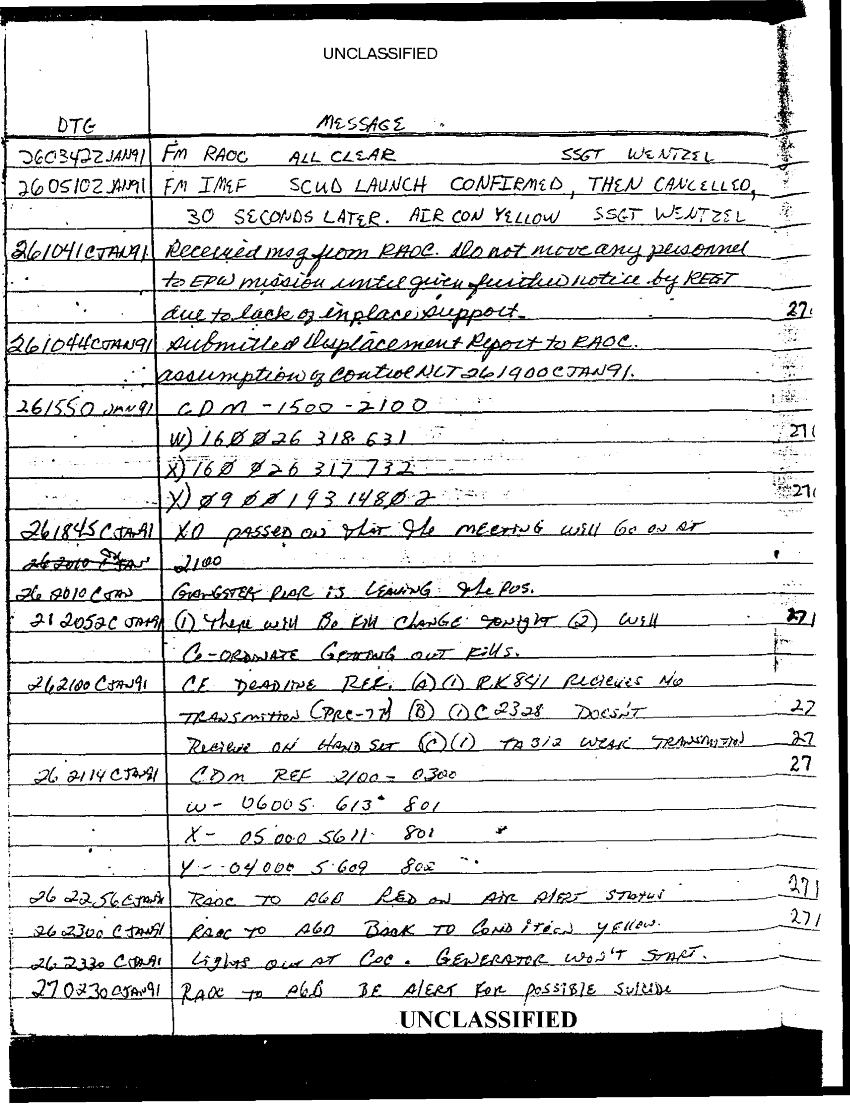 UNCLASSIFIED
DTG MESSAGE
260342Z JAN91 FM RAOC ALL CLEAR SSGT WENTZEL
260510Z JAN91 FM IMEF SCUD LAUNCH CONFIRMED, THEN CANCELLED,
30 SECONDS LATER. AIR CON YELLOW SSGT WENTZEL
261041CJAN91 Received msg from RAOC. Do not move any personnel
to EPW mission until given further notice by REGT
due to lack of inplace support. 27
261044CJAN91 Submitted Displacement Report to RAOC.
assumption of control NLT 261900CJAN91.
261550 JAN91 CDM - 1500 - 2100
W) 16ØØ26 318 631 271
X) 16Ø Ø26 317 732
Y) Ø9ØØ193148Ø2 271
261845CJAN91 XO PASSED ON that the MEETING will Go ON AT
2100
26 2010 CJAN GANGSTER REAR is LEAVING the POS.
212052C JAN91 (1) There will Be Kill CHANGE tonight (2) Will 271
CO-ORDINATE GETTING OUT Kills.
262100CJAN91 CE DEADLINE REF. (A)(1) RK841 RECIEVES NO
TRANSMITION (PRC-77) (B) (1) C2328 DOESN'T 27
RECIEVE ON HAND SET (C)(1) TA312 WEAK TRANSMITION 27
26 2114 CJAN91 CDM REF 2100 - 0300 27
W - 06005 613 801
X - 05000 5611 801
Y - 04000 5609 802
26 2256CJAN91 RAOC TO AGB RED ON AIR AlERT STATUS 271
26 2300 CJAN91 RAOC TO AGB BACK TO CONDITION YELLOW. 271
26 2330 CJAN91 Lights out AT COC. GENERATOR WON'T START.
270230CJAN91 RAOC to AGB BE AlERT FOR POSSIBLE SUICIDE
UNCLASSIFIED